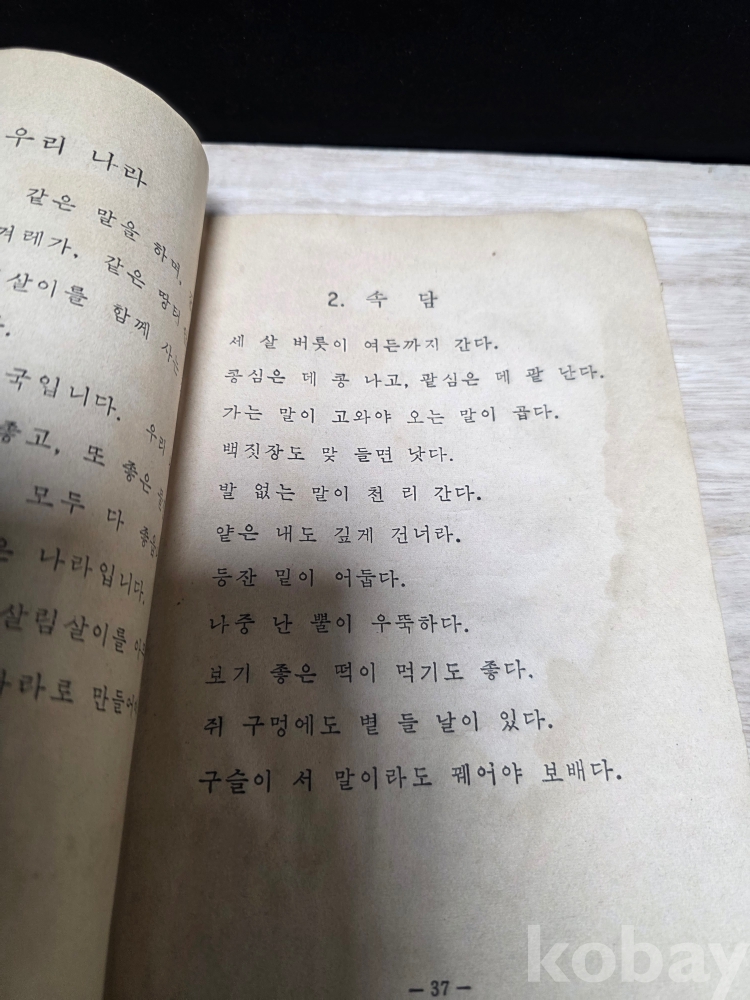 우리 나라
같은 말을 하며,
겨레가. 같은 땅
살이를 함께 사는
국입니다. 우리
좋고, 또 좋은
모두 다
나라입니다.
살림살이를
라로
2. 속 담
세 살 버릇이 여든까지 간다.
콩심은 데 콩 나고, 팥심은 데 팥 난다.
가는 말이 고와야 오는 말이 곱다.
백짓장도 맞 들면 낫다.
발 없는 말이 천 리 간다.
얕은 내도 깊게 건너라.
등잔 밑이 어둡다.
나중 난 뿔이 우뚝하다.
보기 좋은 떡이 먹기도 좋다.
쥐 구멍에도 볕 들 날이 있다.
구슬이 서 말이라도 꿰어야 보배다.
— 37 —
kobay